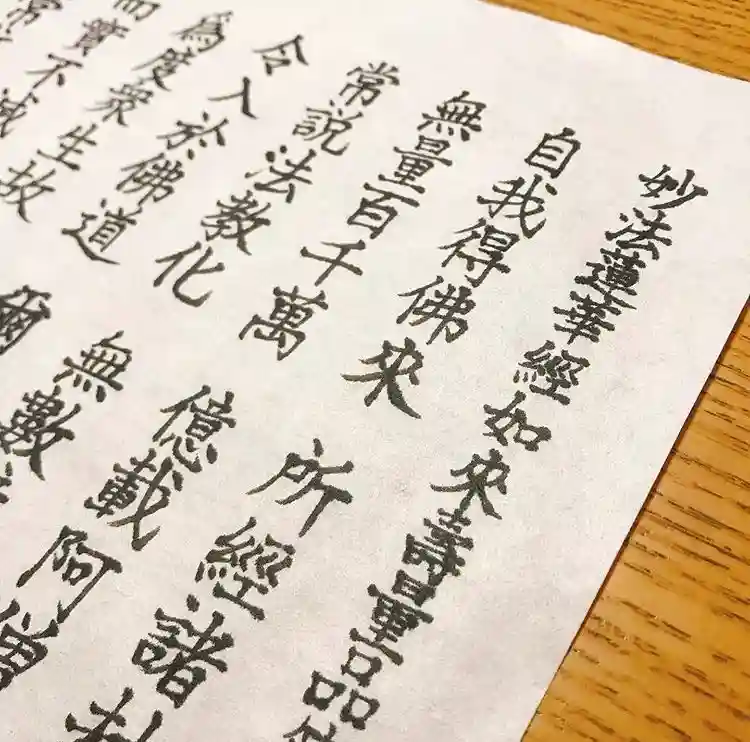 妙法蓮華經如来壽量品
自我得佛来 所經諸
無量百千萬 億載阿僧
常説法教化 無數
令入於佛道 爾
爲度衆生故
而實不滅
常